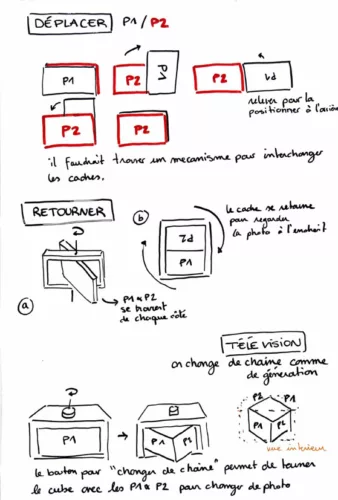 DÉPLACER P1 / P2
P1 P2 P1 P2 P1
relever pour la
positionner à l'arrière
P2 P2
il faudrait trouver un mecanisme pour interchanger
les cadres.
RETOURNER
b
le cadre se retourne
pour regarder
la photo à l'endroit
P2
P1
a
→ P1 & P2
se trouvent
de chaque côté
TÉLÉVISION
on change de chaine comme
de génération
P2 P1
P1 → P1 P2 P1 P2
vue intérieur
le bouton pour "changer de chaîne" permet de tourner
le cube avec les P1 & P2 pour changer de photo